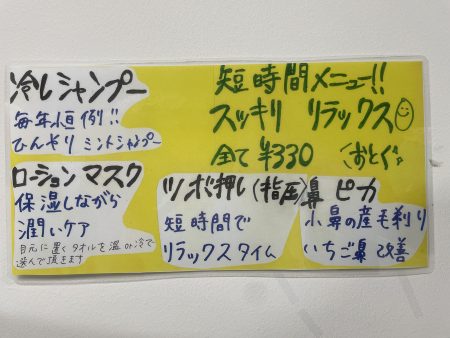 冷しシャンプー
毎年恒例!!
ひんやり ミントシャンプー
短時間メニュー!!
スッキリ リラックス
全て ¥330 おとく。
ローション マスク
保湿しながら
潤いケア
目元に置くタオルを温or冷で
選んで頂きます
ツボ押し(指圧)
短時間で
リラックスタイム
鼻 ピカ
小鼻の産毛剃り
いちご鼻 改善